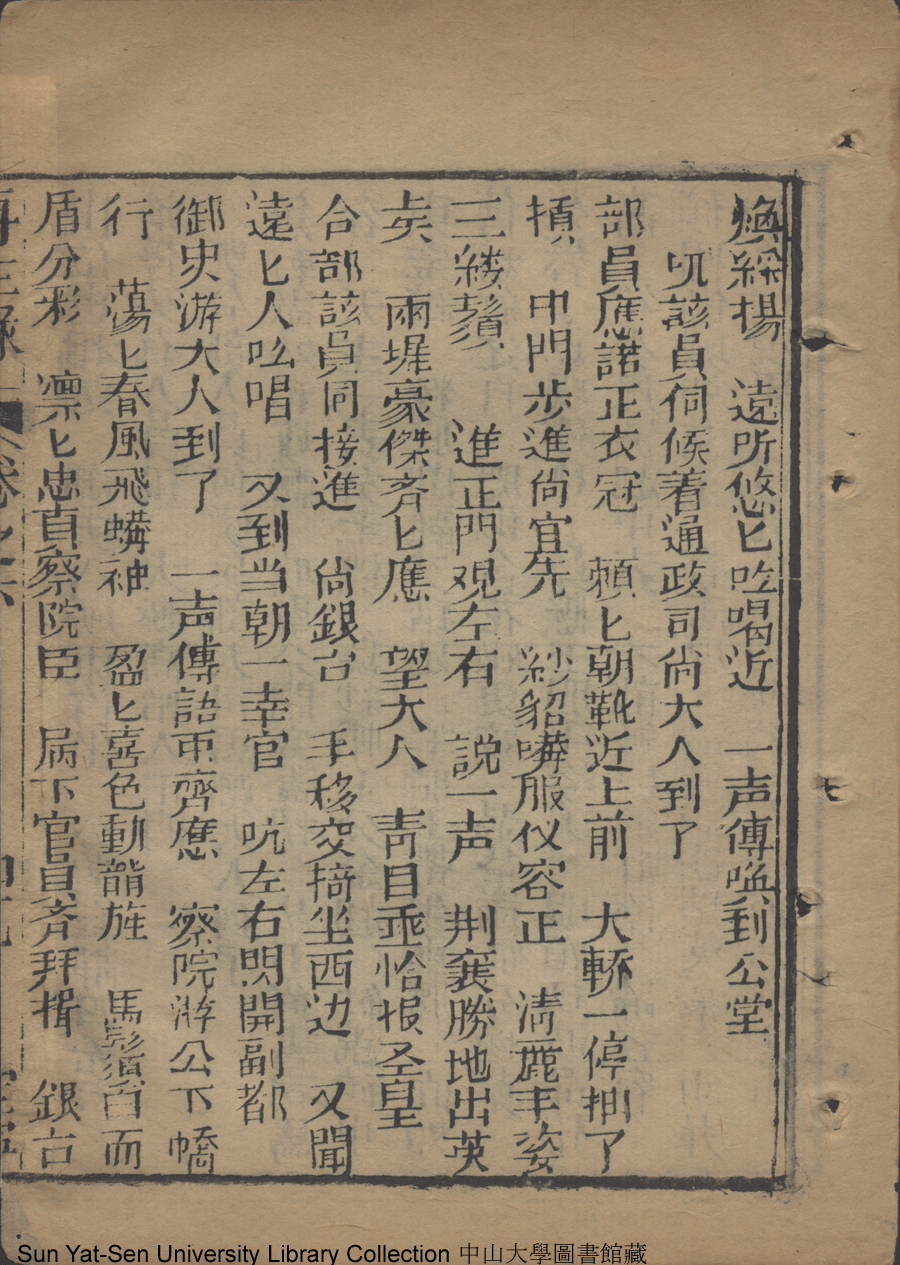 煥綵揚　遠所悠匕吆喝近　一声傳喚到公堂
　　叽該員伺候着通政司尚大人到了
部員應諾正衣冠　頼匕朝靴近上前　大轎一停抽了
槓　中門步進尚宜先　紗貂蟒服仪容正　淸麗丰姿
三綹鬚　　進正門观左右　説一声　荆襄勝地出英
矣　兩墀豪傑斉匕應　望大人　靑目垂恰报圣皇
合部該員同接進　尙銀台　手移交椅坐西边　又聞
遠匕人吆唱　又到当朝一幸官　吭左右閃開副都
御史游大人到了　一声傳語帀齊應　察院游公下轎
行　蕩匕春風飛蟒袖　盈匕喜色動龍旌　馬髟須白面
盾分彩　凛匕忠直察院臣　扃下官員斉拜揖　銀台
再生緣　卷之六
Sun Yat-Sen University Library Collection 中山大學圖書館藏